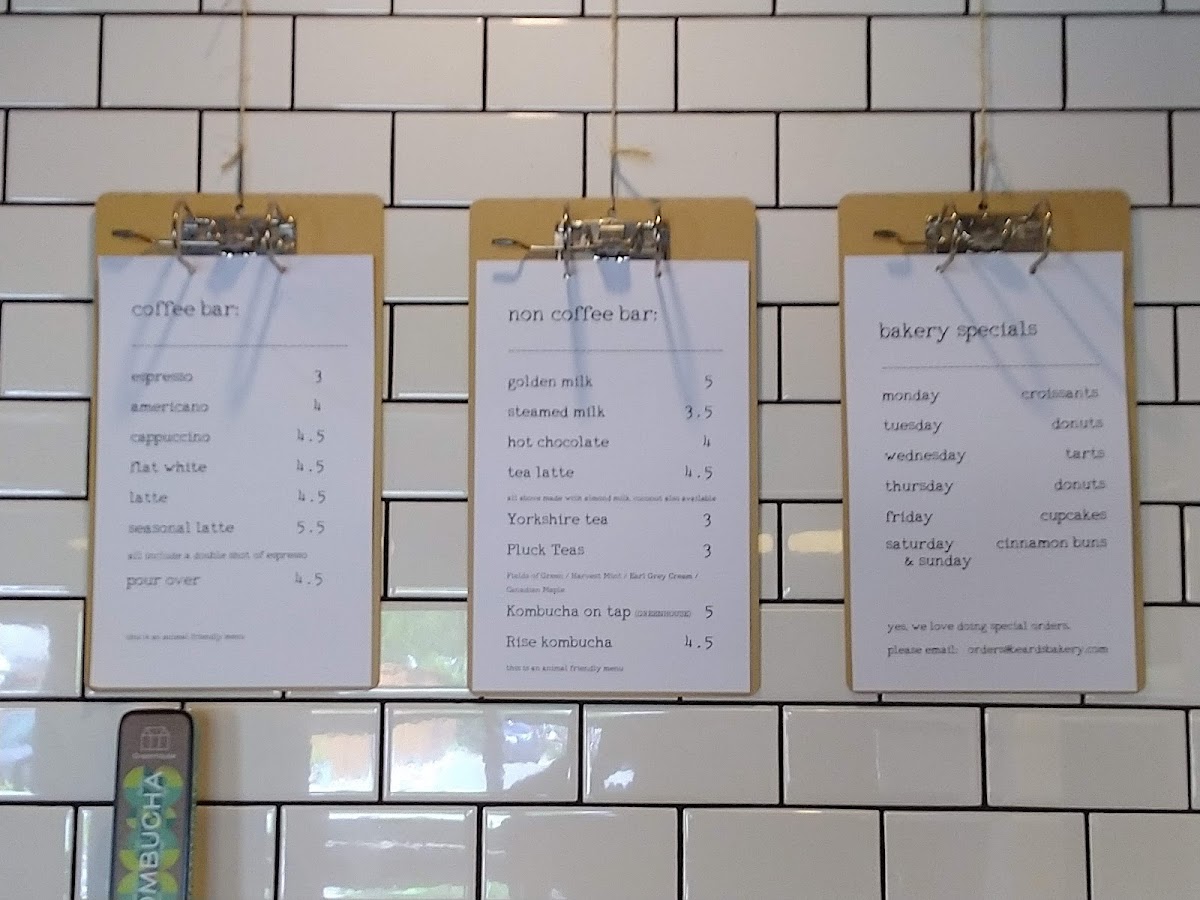 coffee bar:
espresso 3
americano 4
cappuccino 4.5
flat white 4.5
latte 4.5
seasonal latte 5.5
all include a double shot of espresso
pour over 4.5
this is an animal friendly menu
non coffee bar:
golden milk 5
steamed milk 3.5
hot chocolate 4
tea latte 4.5
all above made with almond milk, coconut also available
Yorkshire tea 3
Pluck Teas 3
Fields of Green / Harvest Mint / Earl Grey Cream /
Canadian Maple
Kombucha on tap 5
Rise kombucha 4.5
this is an animal friendly menu
bakery specials
monday croissants
tuesday donuts
wednesday tarts
thursday donuts
friday cupcakes
saturday cinnamon buns
& sunday
yes, we love doing special orders.
please email: orders@beardsbakery.com
OMBUCHA